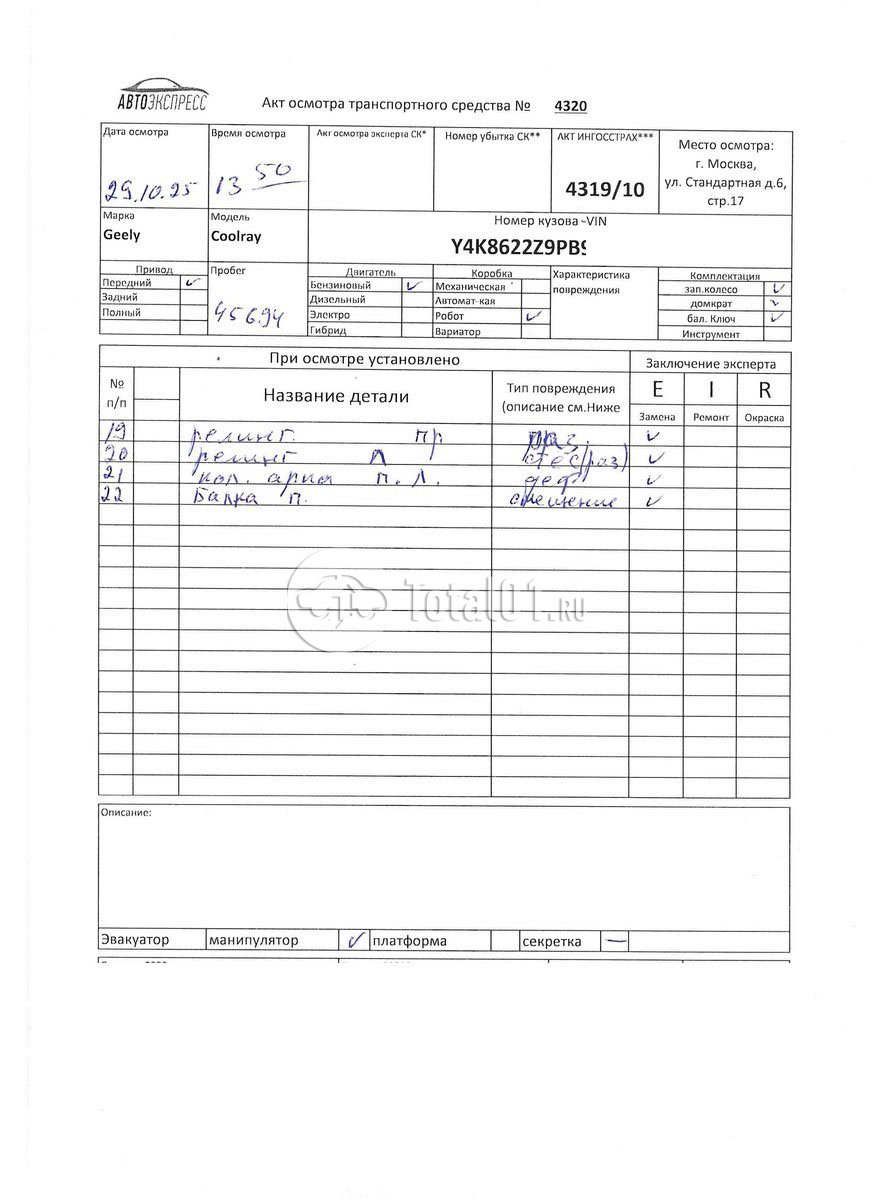 АВТОЭКСПРЕСС
Акт осмотра транспортного средства № 4320
Дата осмотра
29.10.25
Время осмотра
13 50
Акт осмотра эксперта СК*
Номер убытка СК**
АКТ ИНГОССТРАХ***
4319/10
Место осмотра:
г. Москва,
ул. Стандартная д.6,
стр.17
Марка
Geely
Модель
Coolray
Номер кузова -VIN
Y4K8622Z9PB9
Привод
Передний ✓
Задний
Полный
Пробег
45694
Двигатель
Бензиновый ✓
Дизельный
Электро
Гибрид
Коробка
Механическая
Автомат-кая
Робот ✓
Вариатор
Характеристика
повреждения
Комплектация
зап.колесо ✓
домкрат ✓
бал. Ключ ✓
Инструмент
При осмотре установлено
Заключение эксперта
№
п/п
Название детали
Тип повреждения
(описание см.Ниже
E I R
Замена Ремонт Окраска
19 релинг пр. ✓
20 релинг л ✓
21 кол. арка п. л. деф ✓
22 Балка п. смещение ✓
Total01.RU
Описание:
Эвакуатор манипулятор ✓ платформа секретка —